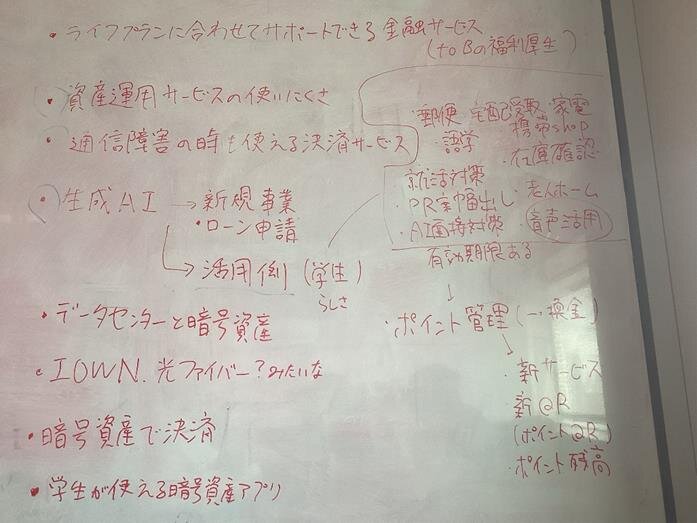 ・ライフプランに合わせてサポートできる金融サービス
(toBの福利厚生)
・資産運用サービスの使いにくさ
・通信障害の時も使える決済サービス
・生成AI → 新規事業
・ローン申請
→ 活用例 (学生)
らしさ
・データセンターと暗号資産
・IOWN. 光ファイバー?みたいな
・暗号資産で決済
・学生が使える暗号資産アプリ
・郵便・宅配受取・家電
携帯shop
・語学
・在庫確認
就活対策
・PR案幅出し・老人ホーム
・AI面接対策・音声活用
有効期限ある
↓
・ポイント管理 (→換金)
・新サービス
新@R
(ポイント@R)
・ポイント残高